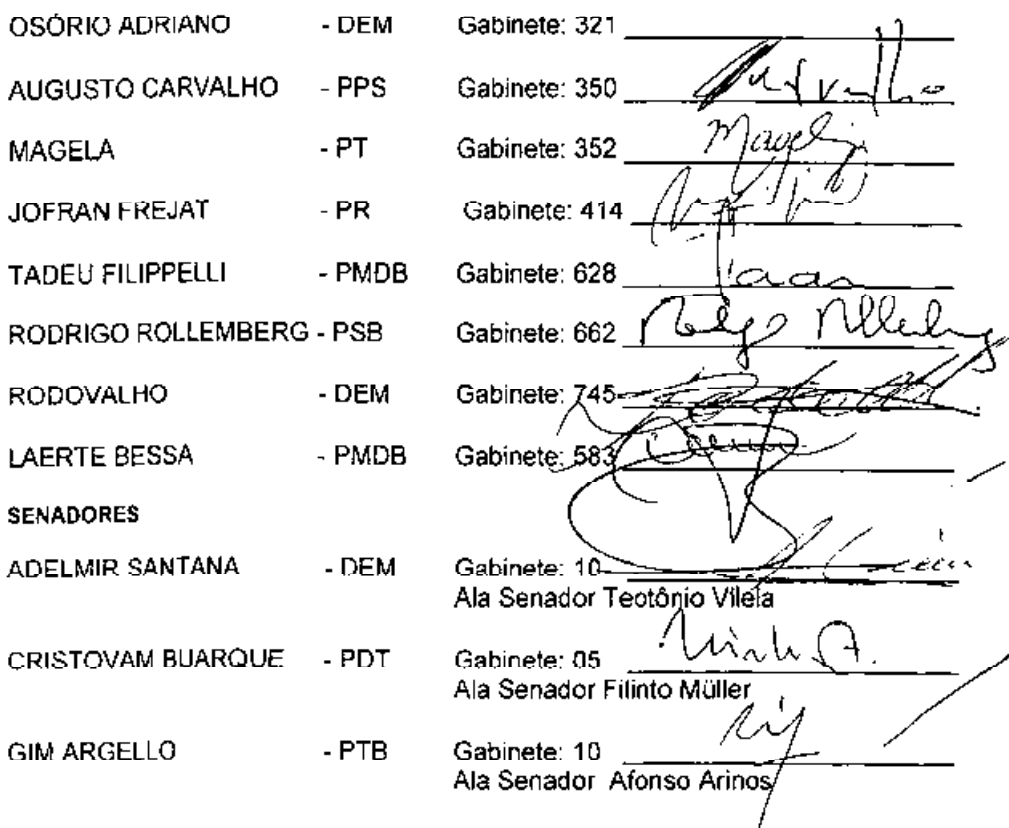 OSÓRIO ADRIANO - DEM Gabinete: 321
AUGUSTO CARVALHO - PPS Gabinete: 350
MAGELA - PT Gabinete: 352 Magela
JOFRAN FREJAT - PR Gabinete: 414
TADEU FILIPPELLI - PMDB Gabinete: 628
RODRIGO ROLLEMBERG - PSB Gabinete: 662
RODOVALHO - DEM Gabinete: 745
LAERTE BESSA - PMDB Gabinete: 583
SENADORES
ADELMIR SANTANA - DEM Gabinete: 10
Ala Senador Teotônio Vilela
CRISTOVAM BUARQUE - PDT Gabinete: 05
Ala Senador Filinto Müller
GIM ARGELLO - PTB Gabinete: 10
Ala Senador Afonso Arinos